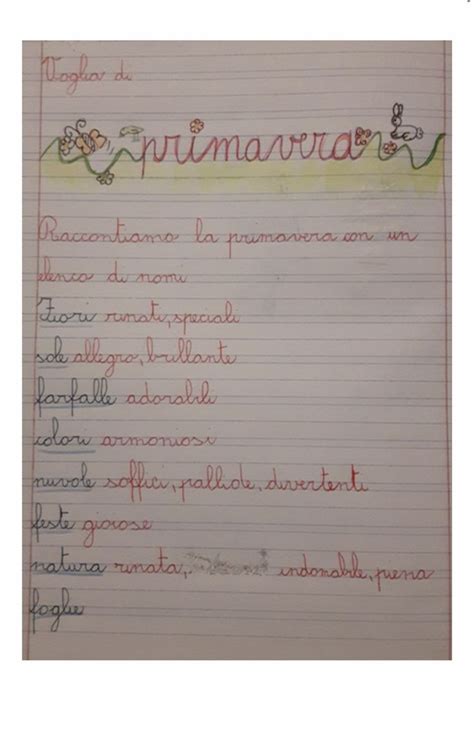 Voglia di
primavera
Raccontiamo la primavera con un
elenco di nomi
Fiori rinati, speciali
sole allegro, brillante
farfalle adorabili
colori armoniosi
nuvole soffici, pallide, divertenti
feste gioiose
natura rinata, indomabile, piena
foglie